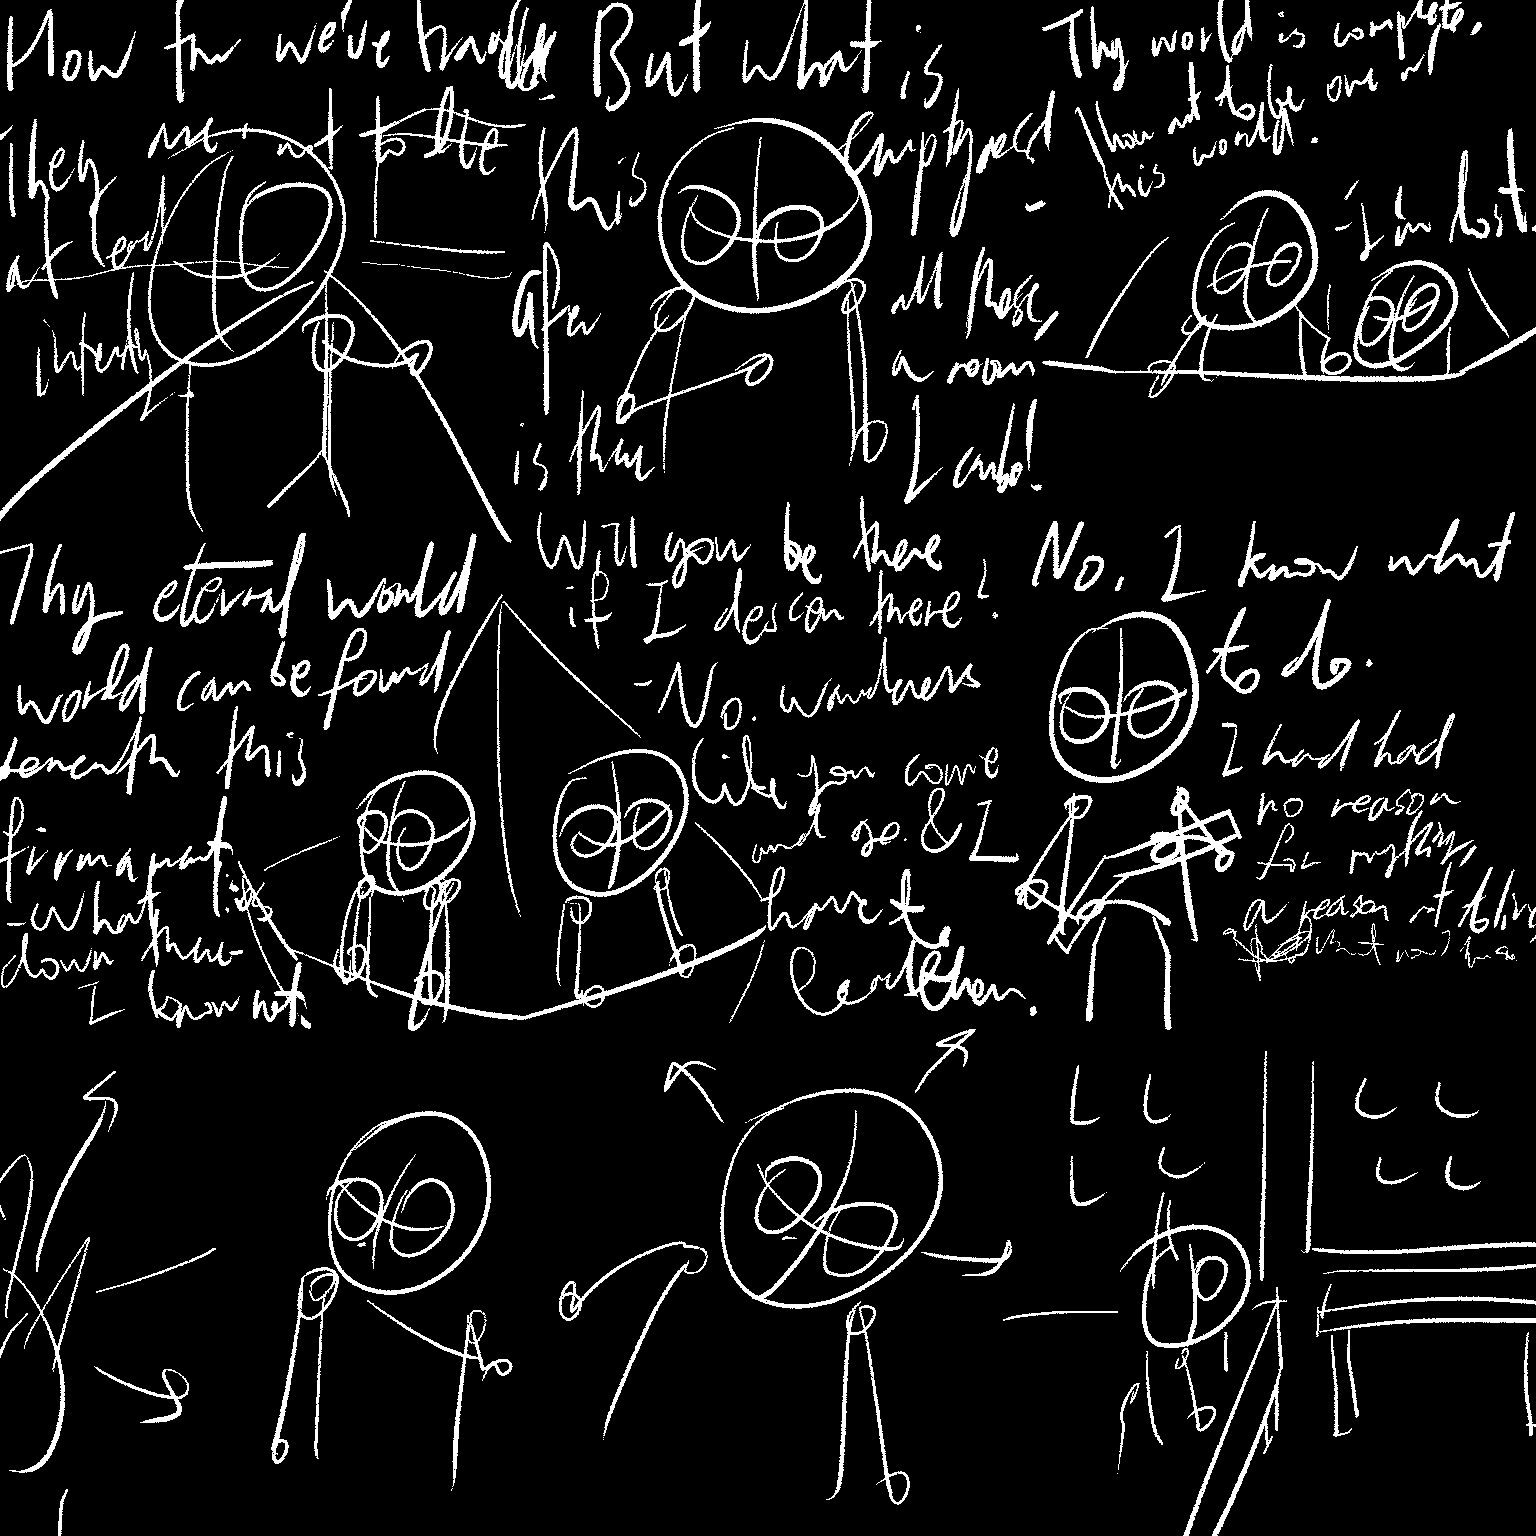 How far we've
They are not to
at least
But what is
this
emptyness
after
all those,
a room
is there
I
Thy world is complete,
thou not to be one of
this world.
- I'm lost.
Thy eternal world
world can be found
beneath this
firmament
- What is
down there
I know not.
Will you be there
if I descen there?
- No. wanderers
like you come
and go. & I
have to
No, I know what
to do.
I had had
no reason
for anything,
a reason not to live